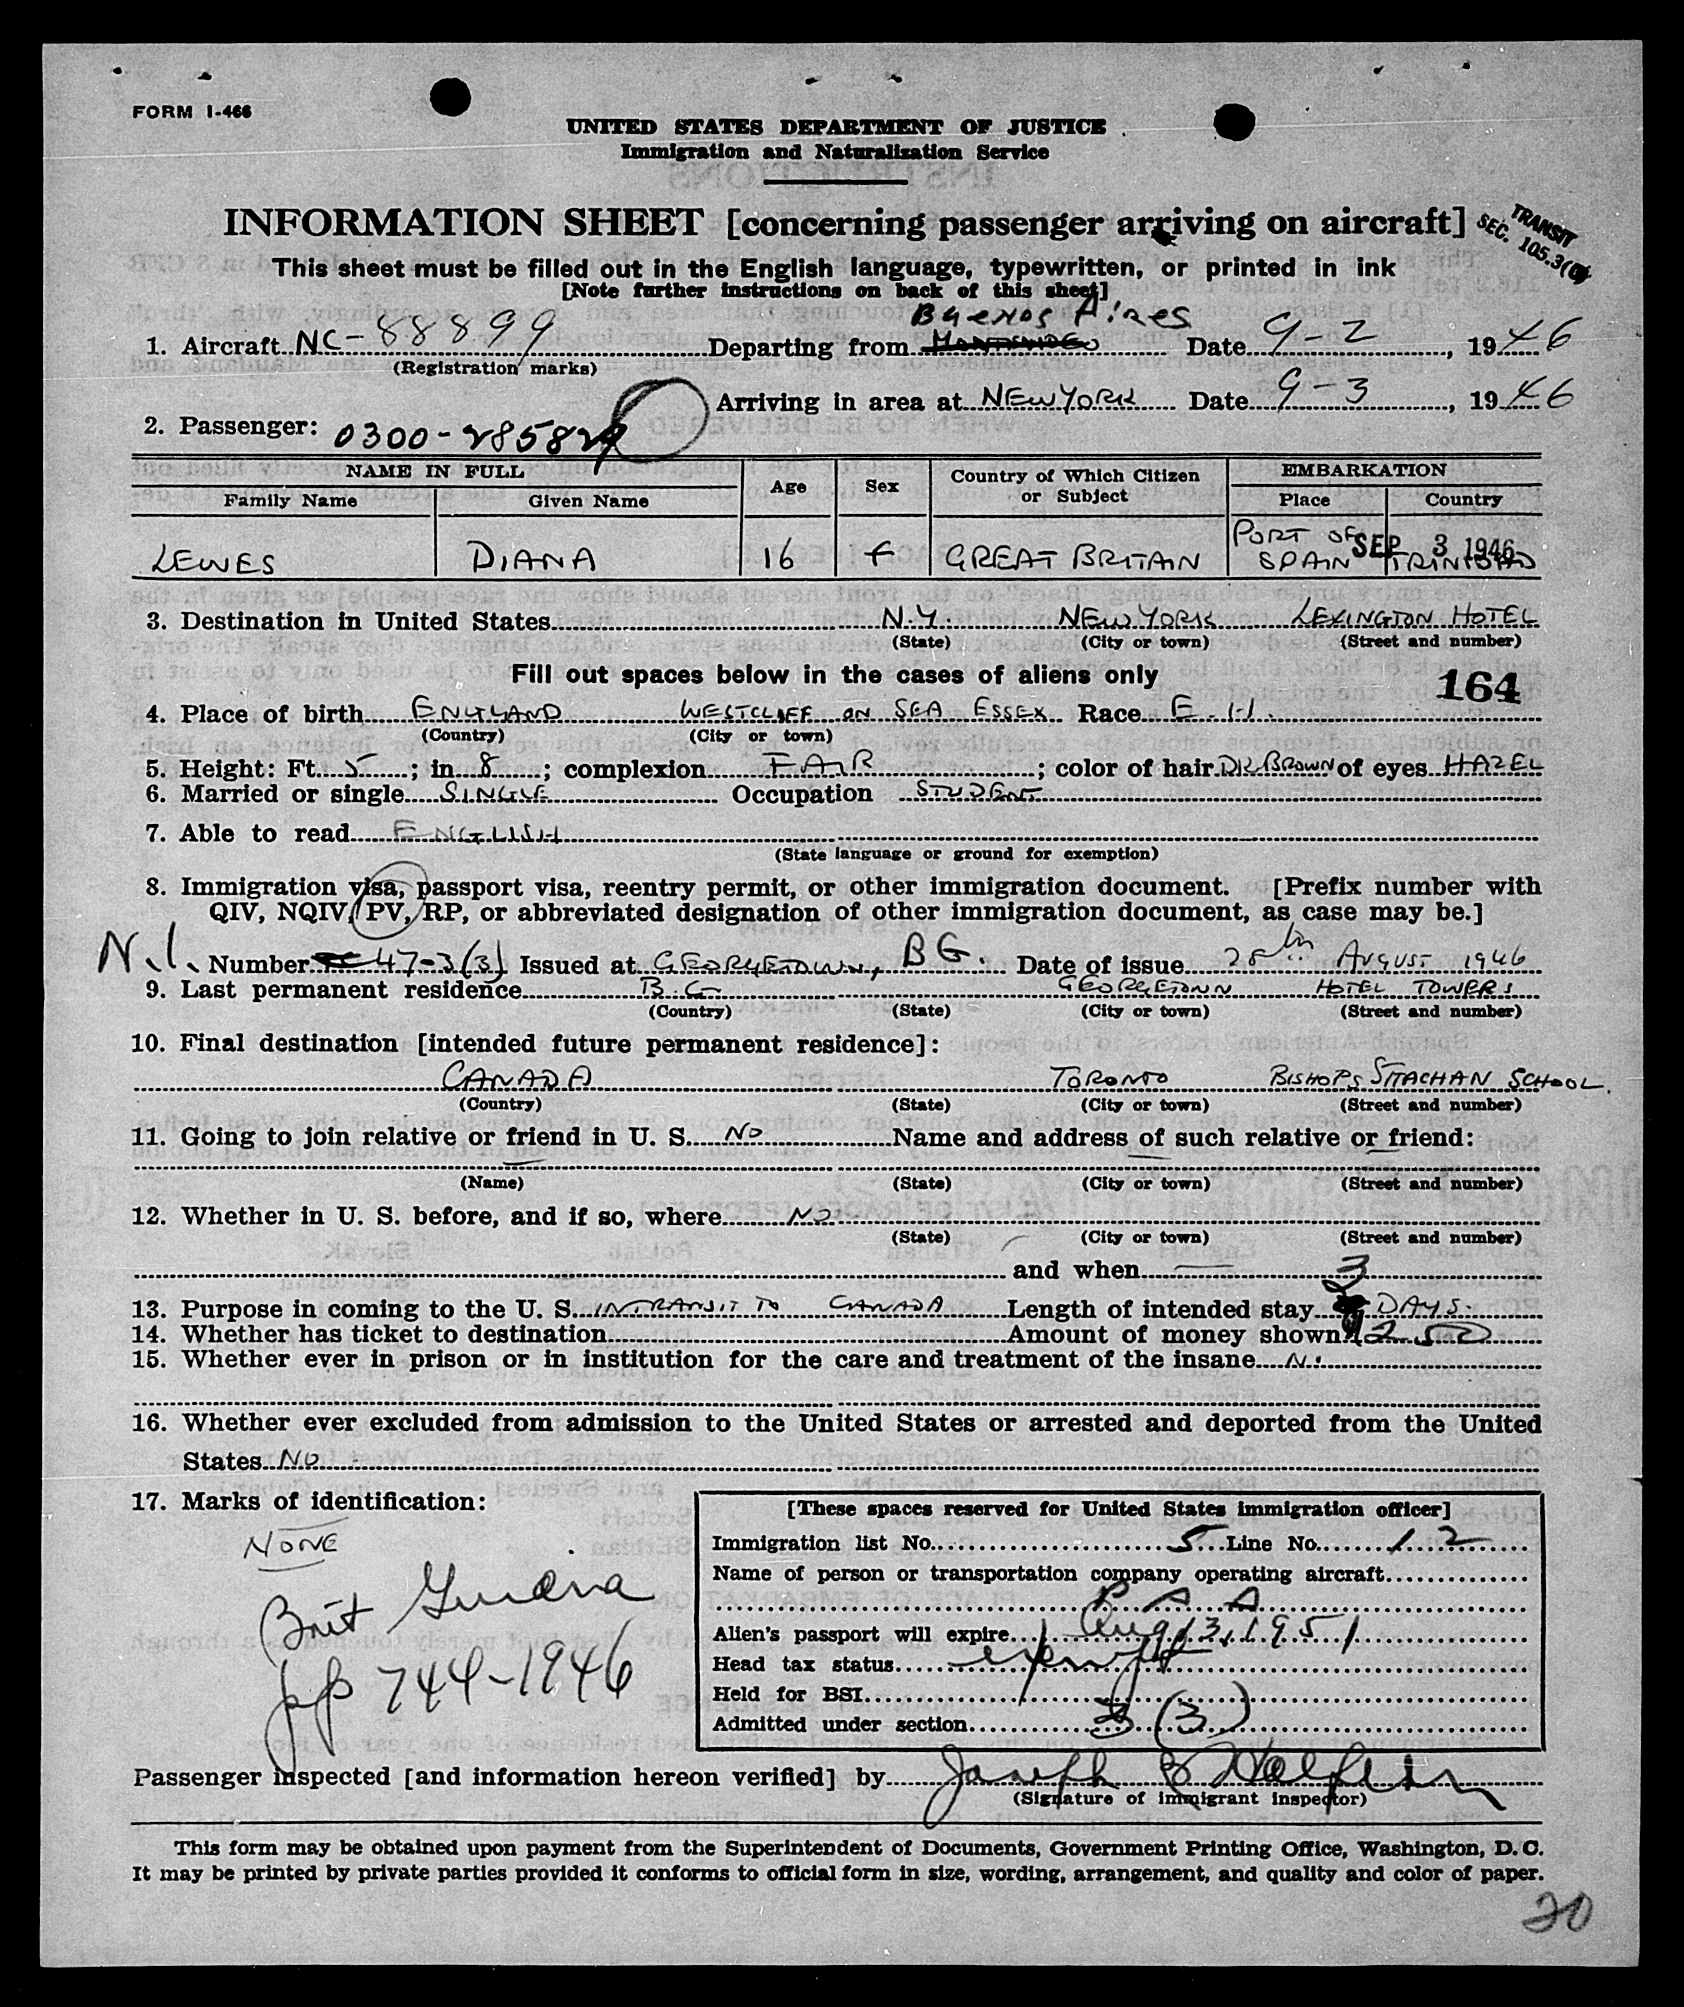 FORM I-466
UNITED STATES DEPARTMENT OF JUSTICE
Immigration and Naturalization Service
INFORMATION SHEET [concerning passenger arriving on aircraft]
TRANSIT
SEC. 105.3(
This sheet must be filled out in the English language, typewritten, or printed in ink
[Note further instructions on back of this sheet]
Buenos Aires
1. Aircraft NC-88899 Departing from Date 9-2, 1946
(Registration marks)
Arriving in area at NEW YORK Date 9-3, 1946
2. Passenger: 0300-285829
NAME IN FULL Age Sex Country of Which Citizen or Subject EMBARKATION
Family Name Given Name Place Country
LEWES DIANA 16 F GREAT BRITAIN PORT OF SPAIN TRINIDAD
SEP 3 1946
3. Destination in United States N.Y. NEW YORK LEXINGTON HOTEL
(State) (City or town) (Street and number)
Fill out spaces below in the cases of aliens only 164
4. Place of birth ENGLAND WESTCLIFF ON SEA ESSEX Race E.H.
(Country) (City or town)
5. Height: Ft. 5; in. 8; complexion FAIR; color of hair DK BROWN of eyes HAZEL
6. Married or single SINGLE Occupation STUDENT
7. Able to read ENGLISH
(State language or ground for exemption)
8. Immigration visa, passport visa, reentry permit, or other immigration document. [Prefix number with
QIV, NQIV, PV, RP, or abbreviated designation of other immigration document, as case may be.]
N.I. Number 47-3(3) Issued at GEORGETOWN, BG. Date of issue 28th AUGUST 1946
9. Last permanent residence B.G. GEORGETOWN HOTEL TOWERS
(Country) (State) (City or town) (Street and number)
10. Final destination [intended future permanent residence]:
CANADA TORONTO BISHOPS STRACHAN SCHOOL.
(Country) (State) (City or town) (Street and number)
11. Going to join relative or friend in U. S. NO Name and address of such relative or friend:
(Name) (State) (City or town) (Street and number)
12. Whether in U. S. before, and if so, where NO
(State) (City or town) (Street and number)
and when
3
13. Purpose in coming to the U. S. IN TRANSIT TO CANADA Length of intended stay DAYS.
14. Whether has ticket to destination Amount of money shown 250
15. Whether ever in prison or in institution for the care and treatment of the insane No
16. Whether ever excluded from admission to the United States or arrested and deported from the United
States NO
17. Marks of identification:
NONE
Brit Guiana
pp 744-1946
[These spaces reserved for United States immigration officer]
Immigration list No. 5 Line No. 12
Name of person or transportation company operating aircraft
P A A
Alien's passport will expire Aug 13, 1951
Head tax status exempt
Held for BSI
Admitted under section 3 (3)
Passenger inspected [and information hereon verified] by Joseph
(Signature of immigrant inspector)
This form may be obtained upon payment from the Superintendent of Documents, Government Printing Office, Washington, D. C.
It may be printed by private parties provided it conforms to official form in size, wording, arrangement, and quality and color of paper.
20